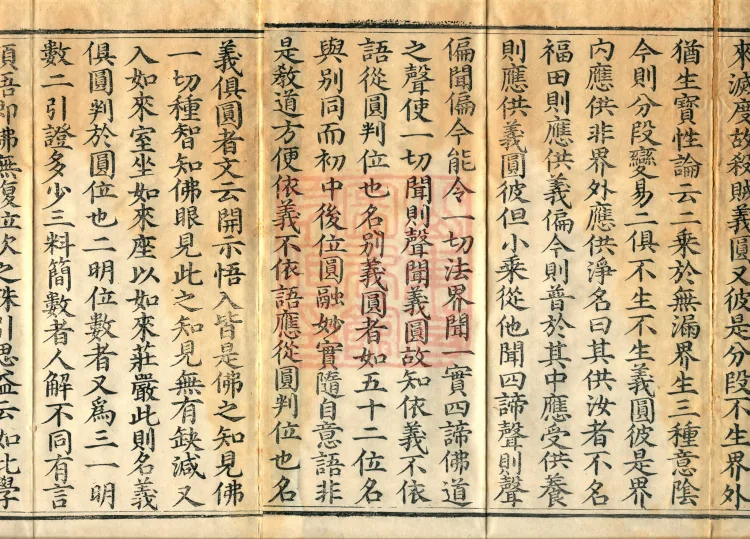 來滅度故殺賊義圓又彼是分段不生界外
猶生寶性論云二乘於無漏界生三種意陰
今則分段變易二俱不生不生義圓彼是界
內應供非界外應供淨名曰其供汝者不名
福田則應供義偏今則普於其中應受供養
則應供義圓彼但小乘從他聞四諦聲則聲
偏聞偏今能令一切法界聞一實四諦佛道
之聲使一切聞則聲聞義圓故知依義不依
語從圓判位也名別義圓者如五十二位名
與別同而初中後位圓融妙實隨自意語非
是教道方便依義不依語應從圓判位也名
義俱圓者文云開示悟入皆是佛之知見佛
一切種智知佛眼見此之知見無有缺減又
入如來室坐如來座以如來莊嚴此則名義
俱圓判於圓位也二明位數者又為三一明
數二引證多少三料簡數者人解不同有言
頓悟即佛無復位次之殊引思益云如此學